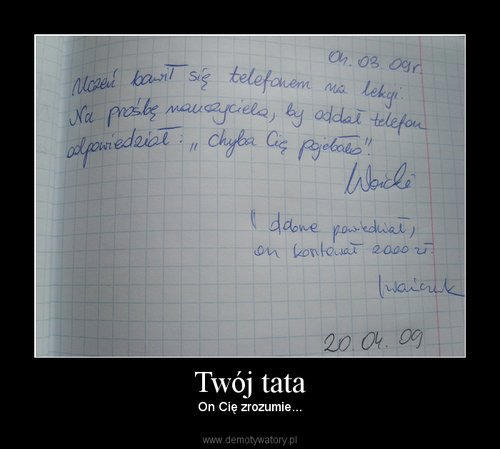 01.03.09r.
Uczeń bawił się telefonem na lekcji.
Na prośbę nauczyciela, by oddał telefon
odpowiedział: „Chyba Cię pojebało".
dobrze powiedział,
on kosztował 2000 zł.
20.04.09
Twój tata
On Cię zrozumie...
www.demotywatory.pl